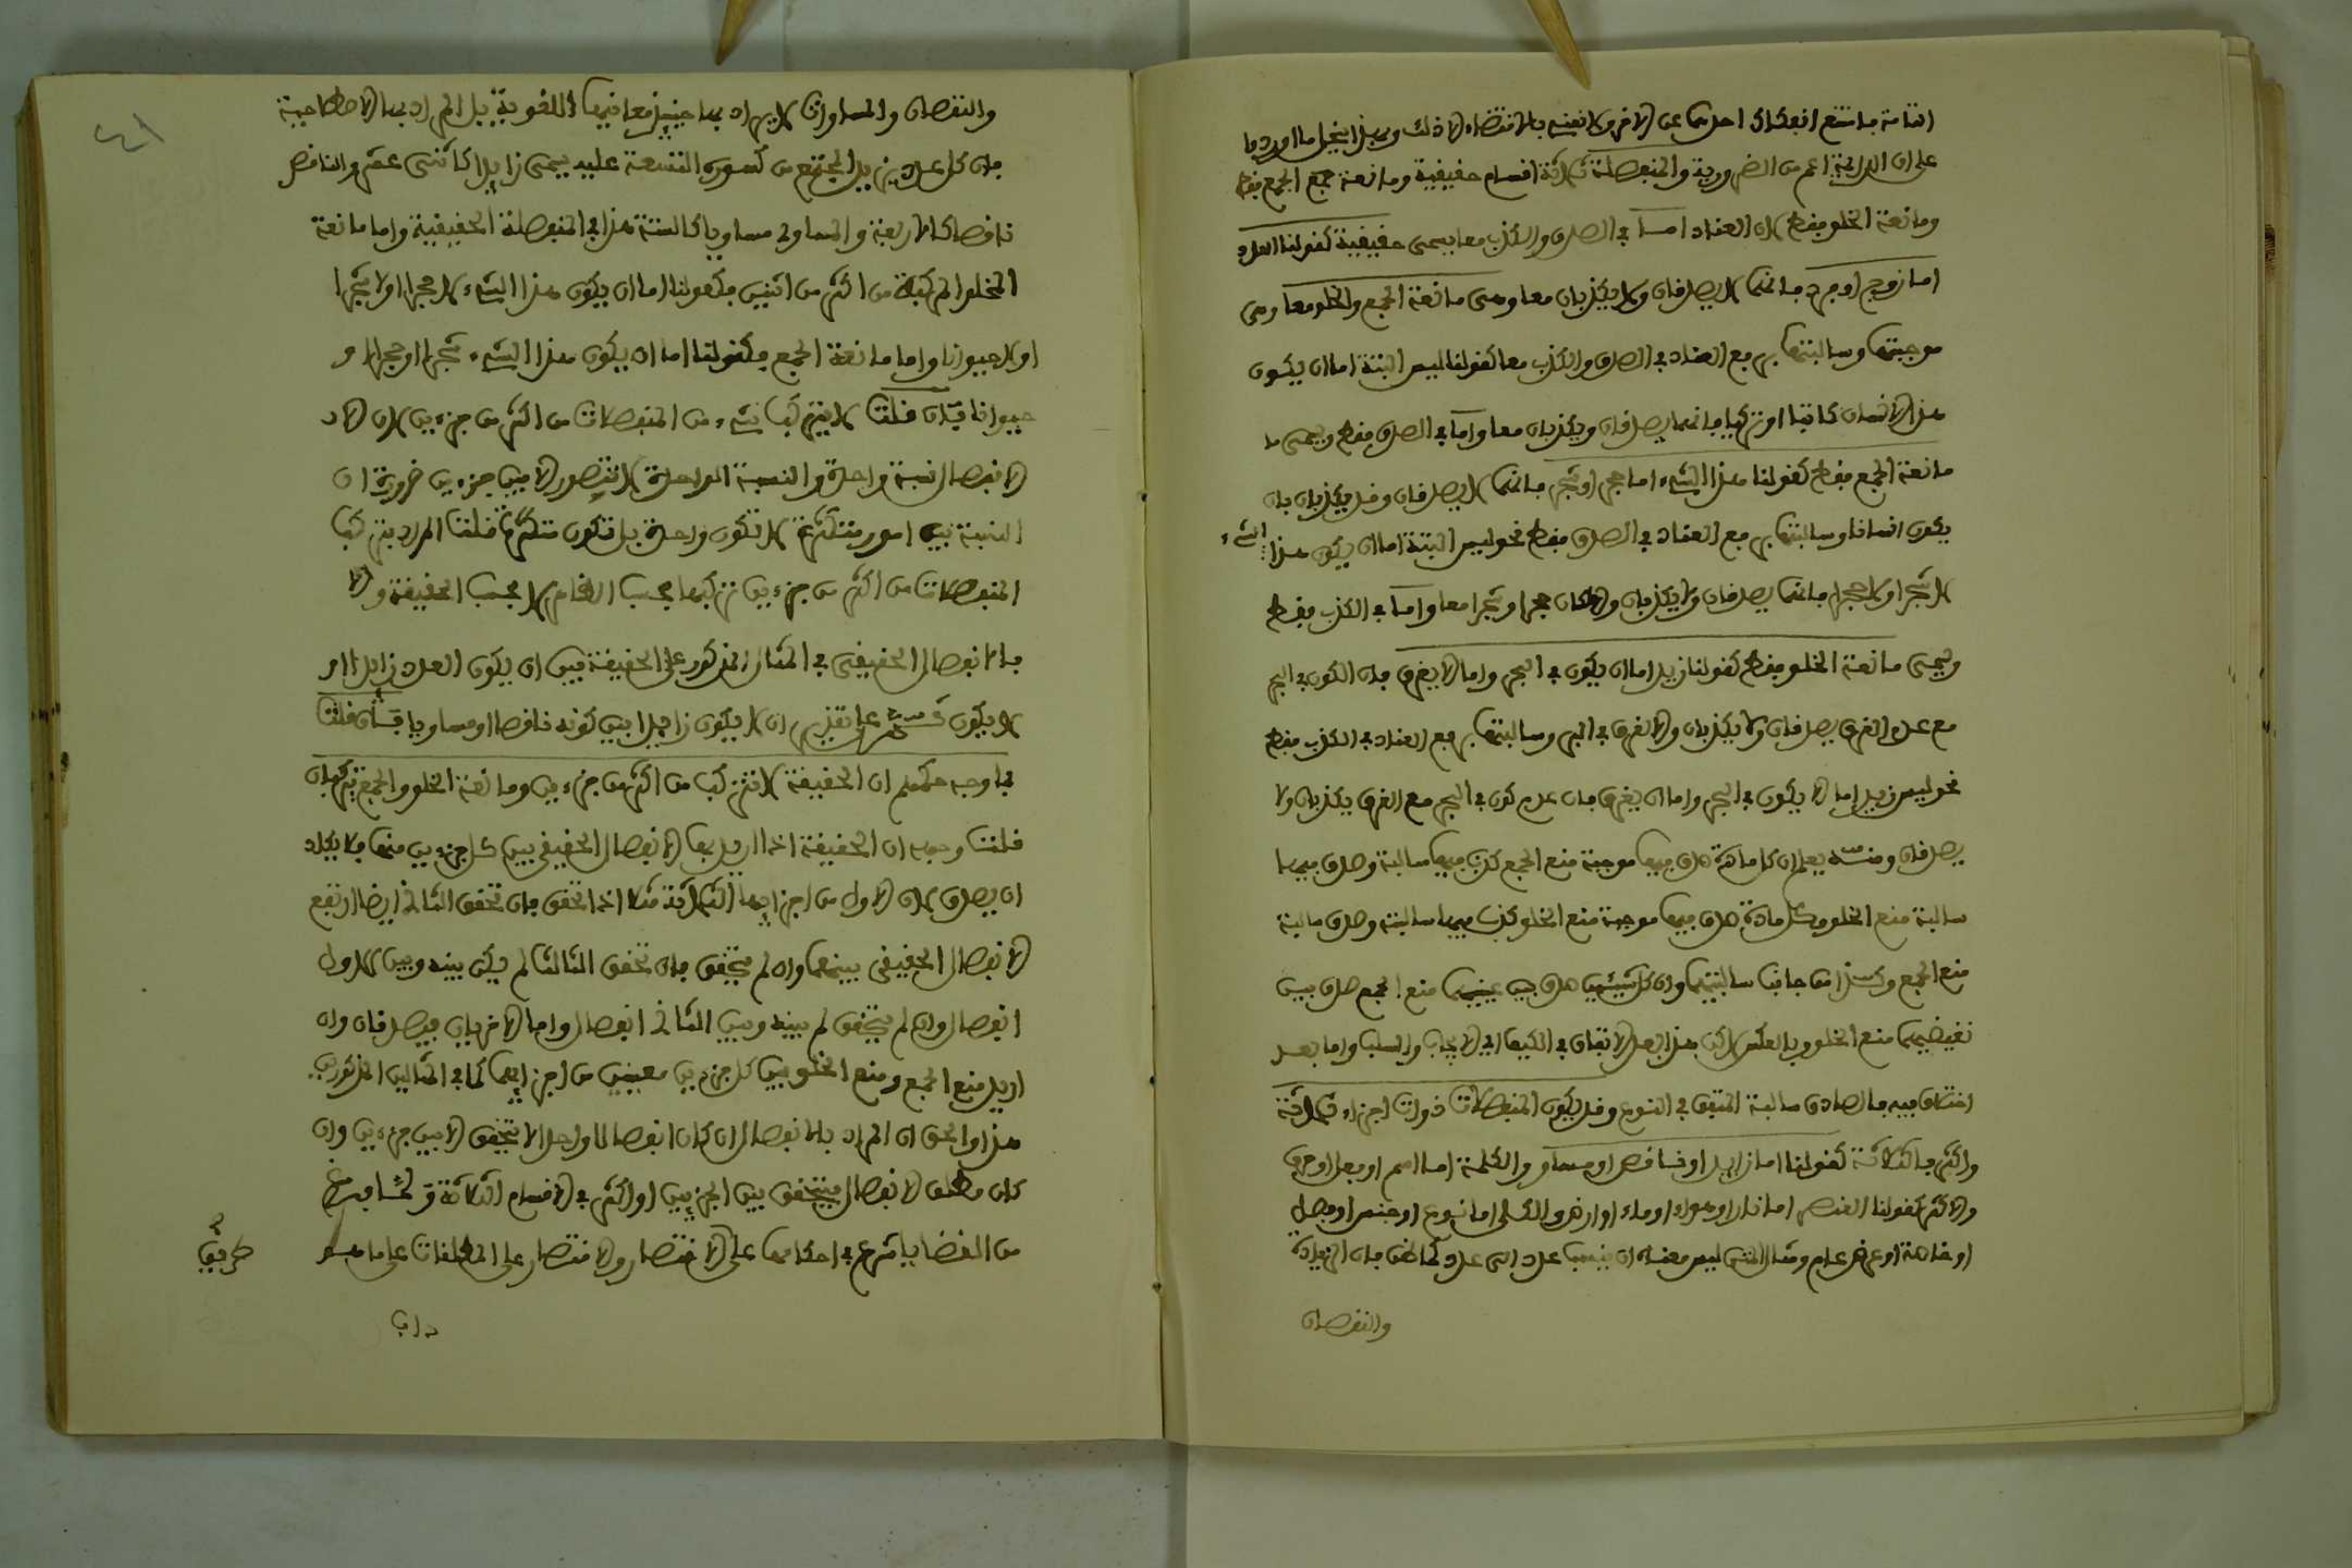 التامة فامتنع انفكاك احدهما عن الاخر ولا نعني بالاقتضاء الا ذلك وبهذا ينحل ما اورد
على ان الدائمة اعم من الضرورية والمنفصلة ثلاثة اقسام حقيقية ومانعة جمع الجمع فقط
ومانعة الخلو فقط لان العناد اما في الصدق والكذب معا يسمى حقيقية كقولنا العدد
اما زوج او فرد فانهما لا يصدقان ولا يكذبان معا وهى مانعة الجمع والخلو معا وهى
موجبتها وسالبتها برفع العناد في الصدق والكذب معا كقولنا ليس البتة اما ان يكون
هذا الانسان كاتبا او تركيا فانهما يصدقان ويكذبان معا واما في الصدق فقط ويسمى
مانعة الجمع فقط كقولنا هذا الشيء اما حجر او شجر فانهما لا يصدقان وقد يكذبان بان
يكون انسانا وسالبتها برفع العناد في الصدق فقط نحو ليس البتة اما ان يكون هذا الشيء
لا شجرا ولا حجرا فانهما يصدقان ولا يكذبان والا لكان حجرا وشجرا معا واما في الكذب فقط
وتسمى مانعة الخلو فقط كقولنا زيد اما ان يكون في البحر واما لا يغرق فان الكون في البحر
مع عدم الغرق يصدقان ولا يكذبان والا لغرق في البر وسالبتها برفع العناد في الكذب فقط
نحو ليس زيد اما لا يكون في البحر واما ان يغرق فان عدم كون في البحر مع الغرق يكذبان ولا
يصدقان ومنه يعلم ان كل مادة صدق فيها موجبة منع الجمع كذب فيها سالبة وصدق فيها
سالبة منع الخلو وكل مادة صدق فيها موجبة منع الخلو كذب فيها سالبته وصدق سالبة
منع الجمع وكذا من جانب سالبتهما وان كل شيئين صدق بين عينيهما منع الجمع صدق بين
نقيضيهما منع الخلو وبالعكس لكن هذا بعد الاتفاق في الكيف اي الايجاب والسلب واما بعد
اختلاف فيه فالصادق سالبة المتفق في النوع وقد يكون المنفصلات ذوات اجزاء ثلاثة
واكثر فالثلاثة كقولنا اما زايد او ناقص او مساو والكلمة اما اسم او فعل او حرف
والاكثر كقولنا العنصر اما نار او هواء او ماء او ارض والكلي اما نوع او جنس او فصل
او خاصة او عرض عام ومثال المتن ليس معناه ان ينسب عدد الى عدد كما ظن فان الزيادة
والنقصان
والنقصان والمساوات لا يراد بها حينئذ معانيها اللغوية بل المراد بها الاصطلاحية
فان كل عدد يزيد المجتمع من كسوره التسعة عليه يسمى زايدا كاثنى عشر والناقص
ناقصا كالاربعة والمساوي مساويا كالستة هذا في المنفصلة الحقيقية واما مانعة
الخلو المركبة من اكثر من اثنين فكقولنا اما ان يكون هذا الشيء لا حجرا او لا شجرا
او لا حيوانا واما مانعة الجمع فكقولنا اما ان يكون هذا الشيء شجرا او حجرا او
حيوانا فان قلت لا يتركب شيء من المنفصلات من اكثر من جزءين لان الا
لانفصال نسبة واحدة والنسبة الواحدة لا تتصور الا بين جزءين ضرورة ان
النسبة بين امور متكثرة لا تكون واحدة بل تكون متكثرة قلت المراد بتركب
المنفصلات من اكثر من جزءين تركيبها بحسب الظاهر لا بحسب الحقيقة والا
فالانفصال الحقيقي في المثال المذكور على الحقيقة بين ان يكون العدد زايدا او
لا يكون ثم على تقدير ان لا يكون زايدا بين كونه ناقصا او مساويا فان قلت
فما وجه حكمهم ان الحقيقة لا تتركب من اكثر من جزءين ومانعة الخلو والجمع يتركبان
قلت وجهه ان الحقيقة اذا اريد بها الانفصال الحقيقي بين كل جزءين منها فلا يكاد
ان يصدق لان الاول من اجزايها الثلاثة مثلا اذا تحقق فان تحقق الثاني ايضا ارتفع
الانفصال الحقيقي بينهما وان لم يتحقق فان تحقق الثالث لم يكن بينه وبين الاول
انفصال وان لم يتحقق لم بينه وبين الثاني انفصال واما الاخريان فيصدقان وان
اريد منع الجمع ومنع الخلو بين كل جزءين معينين من اجزايهما كما في المثالين المذكورين
هذا والحق ان المراد بالانفصال ان كان انفصالا واحدا لا يتحقق الا بين جزءين وان
كان مطلق الانفصال فيتحقق بين الجزءين او اكثر في الاقسام الثلاثة ولما فرغ
من القضايا شرع في احكامها على الاختصار والاقتصار على المطلقات على ما هو
داب